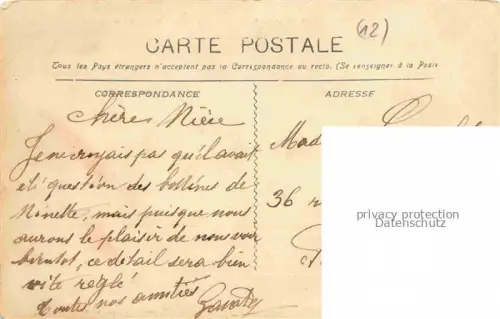 (12)
CARTE POSTALE
Tous les Pays étrangers n'acceptent pas la Correspondance au recto. (Se renseigner à la Poste
CORRESPONDANCE
ADRESSE
Chère Nièce
Je ne croyais pas qu'il avait
été question des bottines de
Ninette, mais puisque nous
aurons le plaisir de nous voir
bientot, ce détail sera bien
vite réglé
Toutes nos amitiés
Mad
36 r
privacy protection
Datenschutz